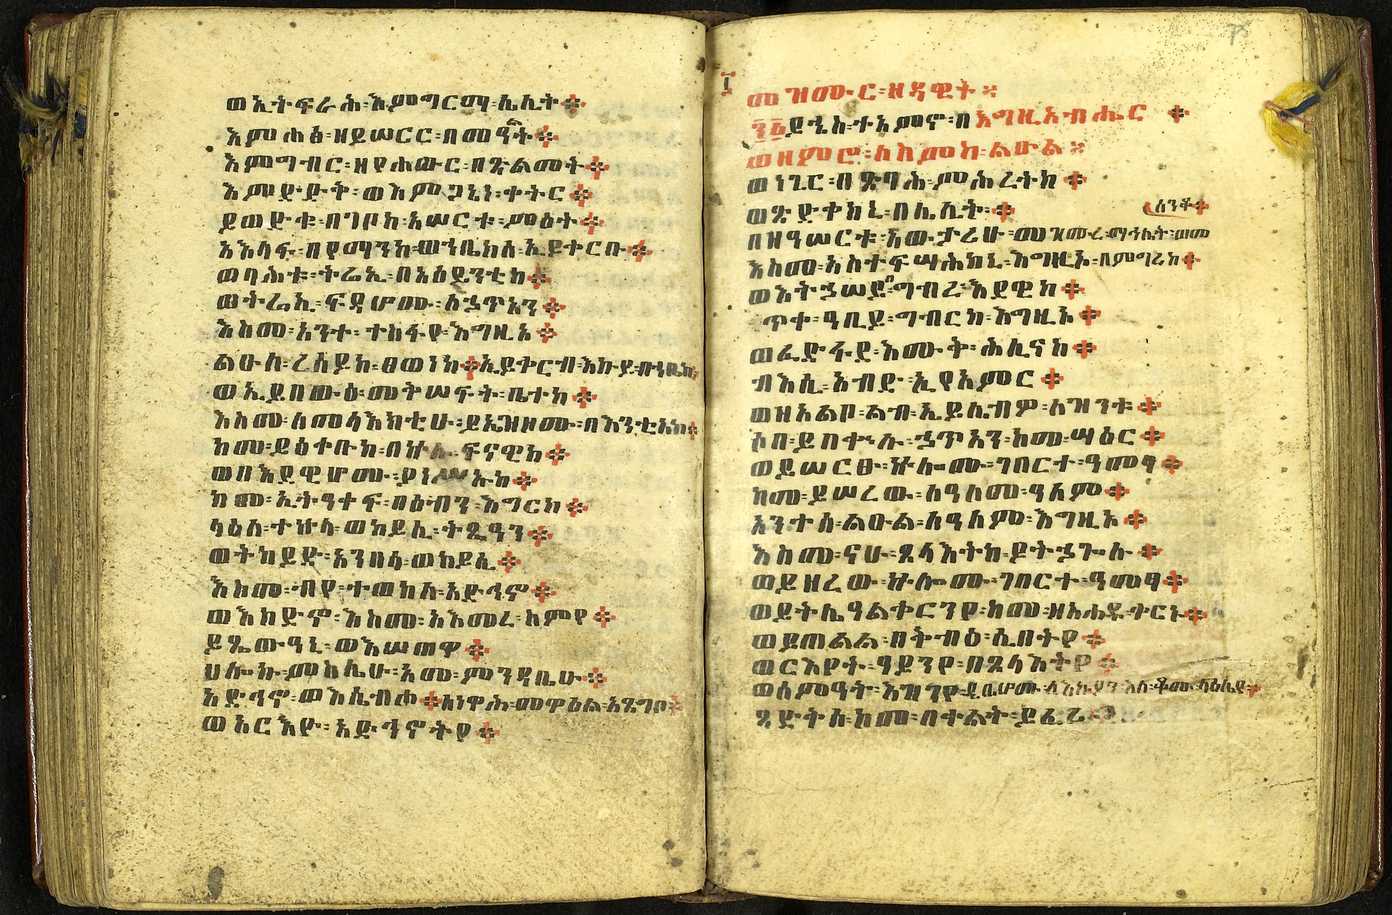 ወኢትፍራህ፡እምግርማ፡ሌሊት፨
እምሐፅ፡ዘይሠርር፡በመዓት፨
እምግብር፡ዘየሐውር፡በጽልመት፨
እምድድቅ፡ወእምጋኔነ፡ቀትር፨
ይወድቁ፡በገቦከ፡አሠርቱ፡ምዕት፨
አእላፍ፡በየማንከ፡ወኀቤከሰ፡ኢይቀርቡ፨
ወባሕቱ፡ትሬኢ፡በአዕይንቲከ፨
ወትሬኢ፡ፍዳሆሙ፡ለኃጥአን፨
እስመ፡አንተ፡ተስፋየ፡እግዚኦ፨
ልዑለ፡ረሰይከ፡ፀወነከ፨ኢይቀርብ፡እኩይ፡ኀቤከ፨
ወኢይበውዕ፡መቅሠፍት፡ቤተከ፨
እስመ፡ለመላእክቲሁ፡ይኤዝዞሙ፡በእንቲአከ፨
ከመ፡ይዕቀቡከ፡በኵሉ፡ፍናዊከ፨
ወበእደዊሆሙ፡ያነሥኡከ፨
ከመ፡ኢትዓቀፍ፡በዕብን፡እግርከ፨
ላዕለ፡ተኵላ፡ወከይሲ፡ትጼዓን፨
ወትከይድ፡አንበሳ፡ወከይሲ፨
እስመ፡ብየ፡ተወከለ፡አድኅኖ፨
ወእከድኖ፡እስመ፡አእመረ፡ስምየ፨
ይጼውዓኒ፡ወእሠጠዋ፨
ሀሎኩ፡ምስሌሁ፡አመ፡ምንዳቤሁ፨
አድኅኖ፡ወእሴብሖ፨ለነዋሕ፡መዋዕል፡አጸግቦ፨
ወአርእዮ፡አድኅኖትየ፨
መዝሙር፡ዘዳዊት፡
፺፩ይኄስ፡ተአምኖ፡በእግዚአብሔር፨
ወዘምሮ፡ለስምከ፡ልዑል፡
ወነጊር፡በጽባሕ፡ምሕረትከ፨
ወጽድቀከኒ፡በሌሊት፨
በዘዓሠርቱ፡አውታሪሁ፡መዝሙረ፡ማኅሌት፡ወመ
ሰንቆ፨
እስመ፡አስተፍሣሕከኒ፡እግዚኦ፡በምግባሪከ፨
ወእትኃሠይ፡በግብረ፡እደዊከ፨
ጥቀ፡ዓቢይ፡ግብርከ፡እግዚኦ፨
ወፈድፋደ፡እሙቅ፡ሕሊናከ፨
ብእሲ፡አብድ፡ኢየአምር፨
ወዘአልቦ፡ልብ፡ኢይሌብዎ፡ለዝንቱ፨
ሶበ፡ይበቍሉ፡ኃጥአን፡ከመ፡ሣዕር፨
ወይሠርፁ፡ኵሎሙ፡ገበርተ፡ዓመፃ፨
ከመ፡ይሠረው፡ለዓለመ፡ዓለም፨
አንተሰ፡ልዑል፡ለዓለም፡እግዚኦ፨
እስመ፡ናሁ፡ጸላእትከ፡ይትኃጐሉ፨
ወይዘረው፡ኵሎሙ፡ገበርተ፡ዓመፃ፨
ወይትሌዓል፡ቀርንየ፡ከመ፡ዘአሐዱ፡ቀርኑ፨
ወይጠልል፡በቅብዕ፡ሲበትየ፨
ወርእየት፡ዓይንየ፡በጸላእትየ፨
ወሰምዓት፡እዝንየ፡ዲቤሆሙ፡ለእኩያን፡እለ፡ቆሙ፡ላዕሌየ፨
ጻድቅሰ፡ከመ፡በቀልት፡ይፈሪ፨